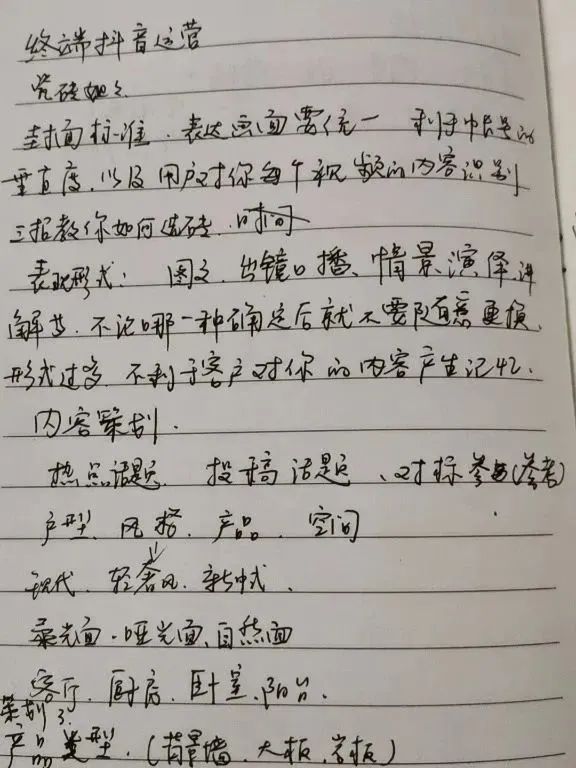 终端抖音运营
瓷砖姐姐
封面标准、表达画面要统一 利于帐号的
垂直度,以及用户对你每个视频的内容识别
三招教你如何选砖、时间
表现形式: 图文、出镜口播、情景演绎、讲
解等、不论哪一种确定后就不要随意更换,
形式过多、不利于客户对你的内容产生记忆.
内容策划.
热点话题、投稿话题、对标参与(参考)
户型、风格、产品、空间
现代、轻奢风、新中式、
亮光面、哑光面、自然面
客厅、厨房、卧室、阳台、
策划
产品类型、(背景墙、大板、岩板)